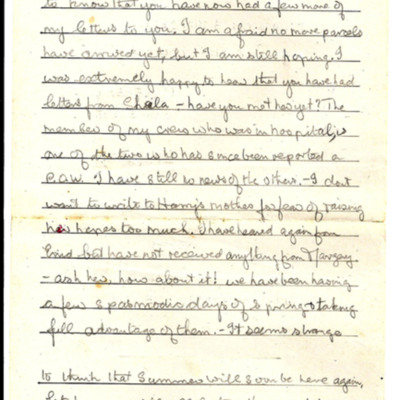 to know that you have now had a few more of
my letters to you. I am afraid no more parcels
have arrived yet, but I am still hoping. I
was extremely happy to hear that you have had
letters from Sheila - have you met her yet? The
member of my crew who was in hospital, is
one of the two who has since been reported a
P.O.W. I have still no news of the others. - I dont
want to write to Harry's mother for fear of raising
her hopes too much. I have heard again from
Enid but have not received anything from
- ask her, how about it! We have been having
a few spasmodic days of spring & taking
full advantage of them. - It seems strange
to think that Summer will soon be here again,